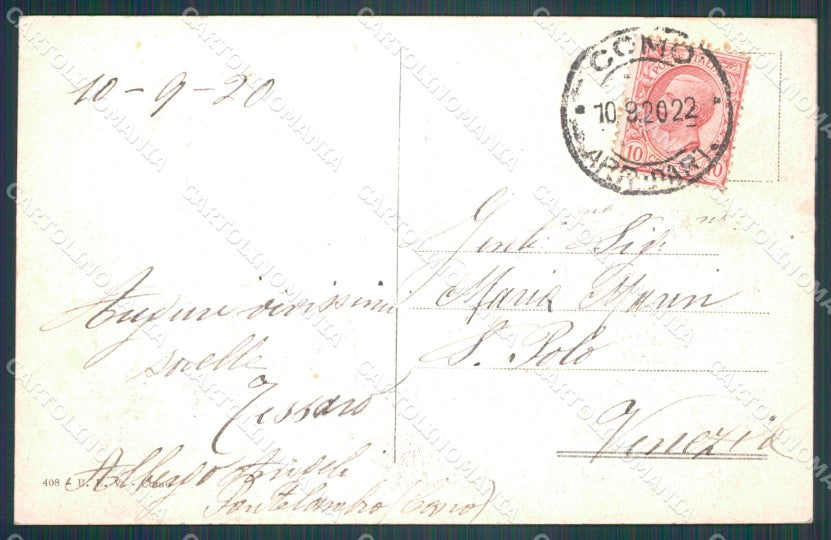 10-9-20
COMO
10.9.20 22
ARR. PART.
10
Gentilma Sigra
Maria Marin
S. Polo
Venezia
Auguri vivissimi
sorelle
Tessaro
Albergo
Pontelambro (Como)
408 - R. E. V. - Como
CARTOLINOMANIA